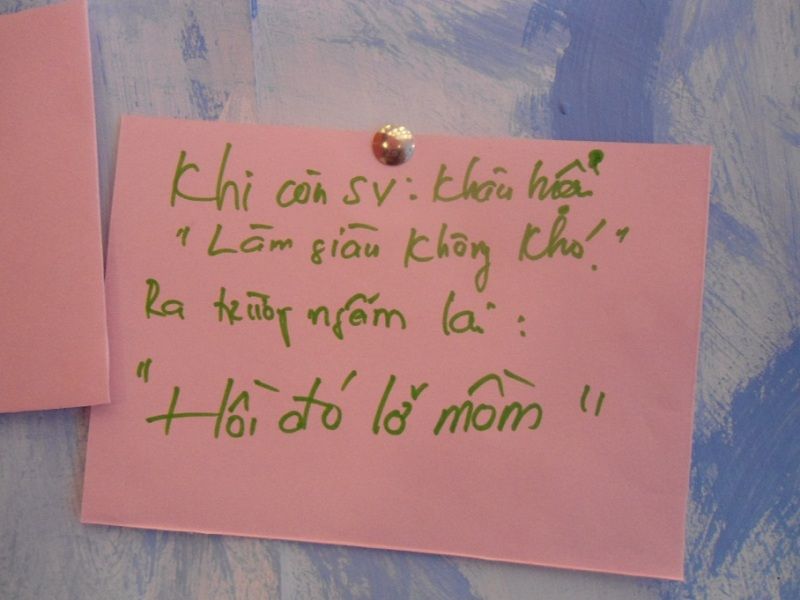 Khi còn SV: khẩu hiệu
"Làm giàu không khó."
Ra trường ngẫm lại:
"Hồi đó lỡ mồm"